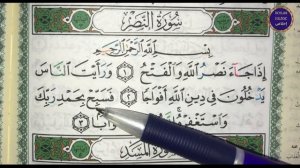 سُورَةُ النَّصْرِ
بِسْمِ اللَّهِ الرَّحْمَٰنِ الرَّحِيمِ
إِذَا جَآءَ نَصْرُ اللَّهِ وَالْفَتْحُ ١ وَرَأَيْتَ النَّاسَ
يَدْخُلُونَ فِي دِينِ اللَّهِ أَفْوَاجًا ٢ فَسَبِّحْ بِحَمْدِ رَبِّكَ
وَاسْتَغْفِرْهُ ٣
سُورَةُ الْمَسَدِ